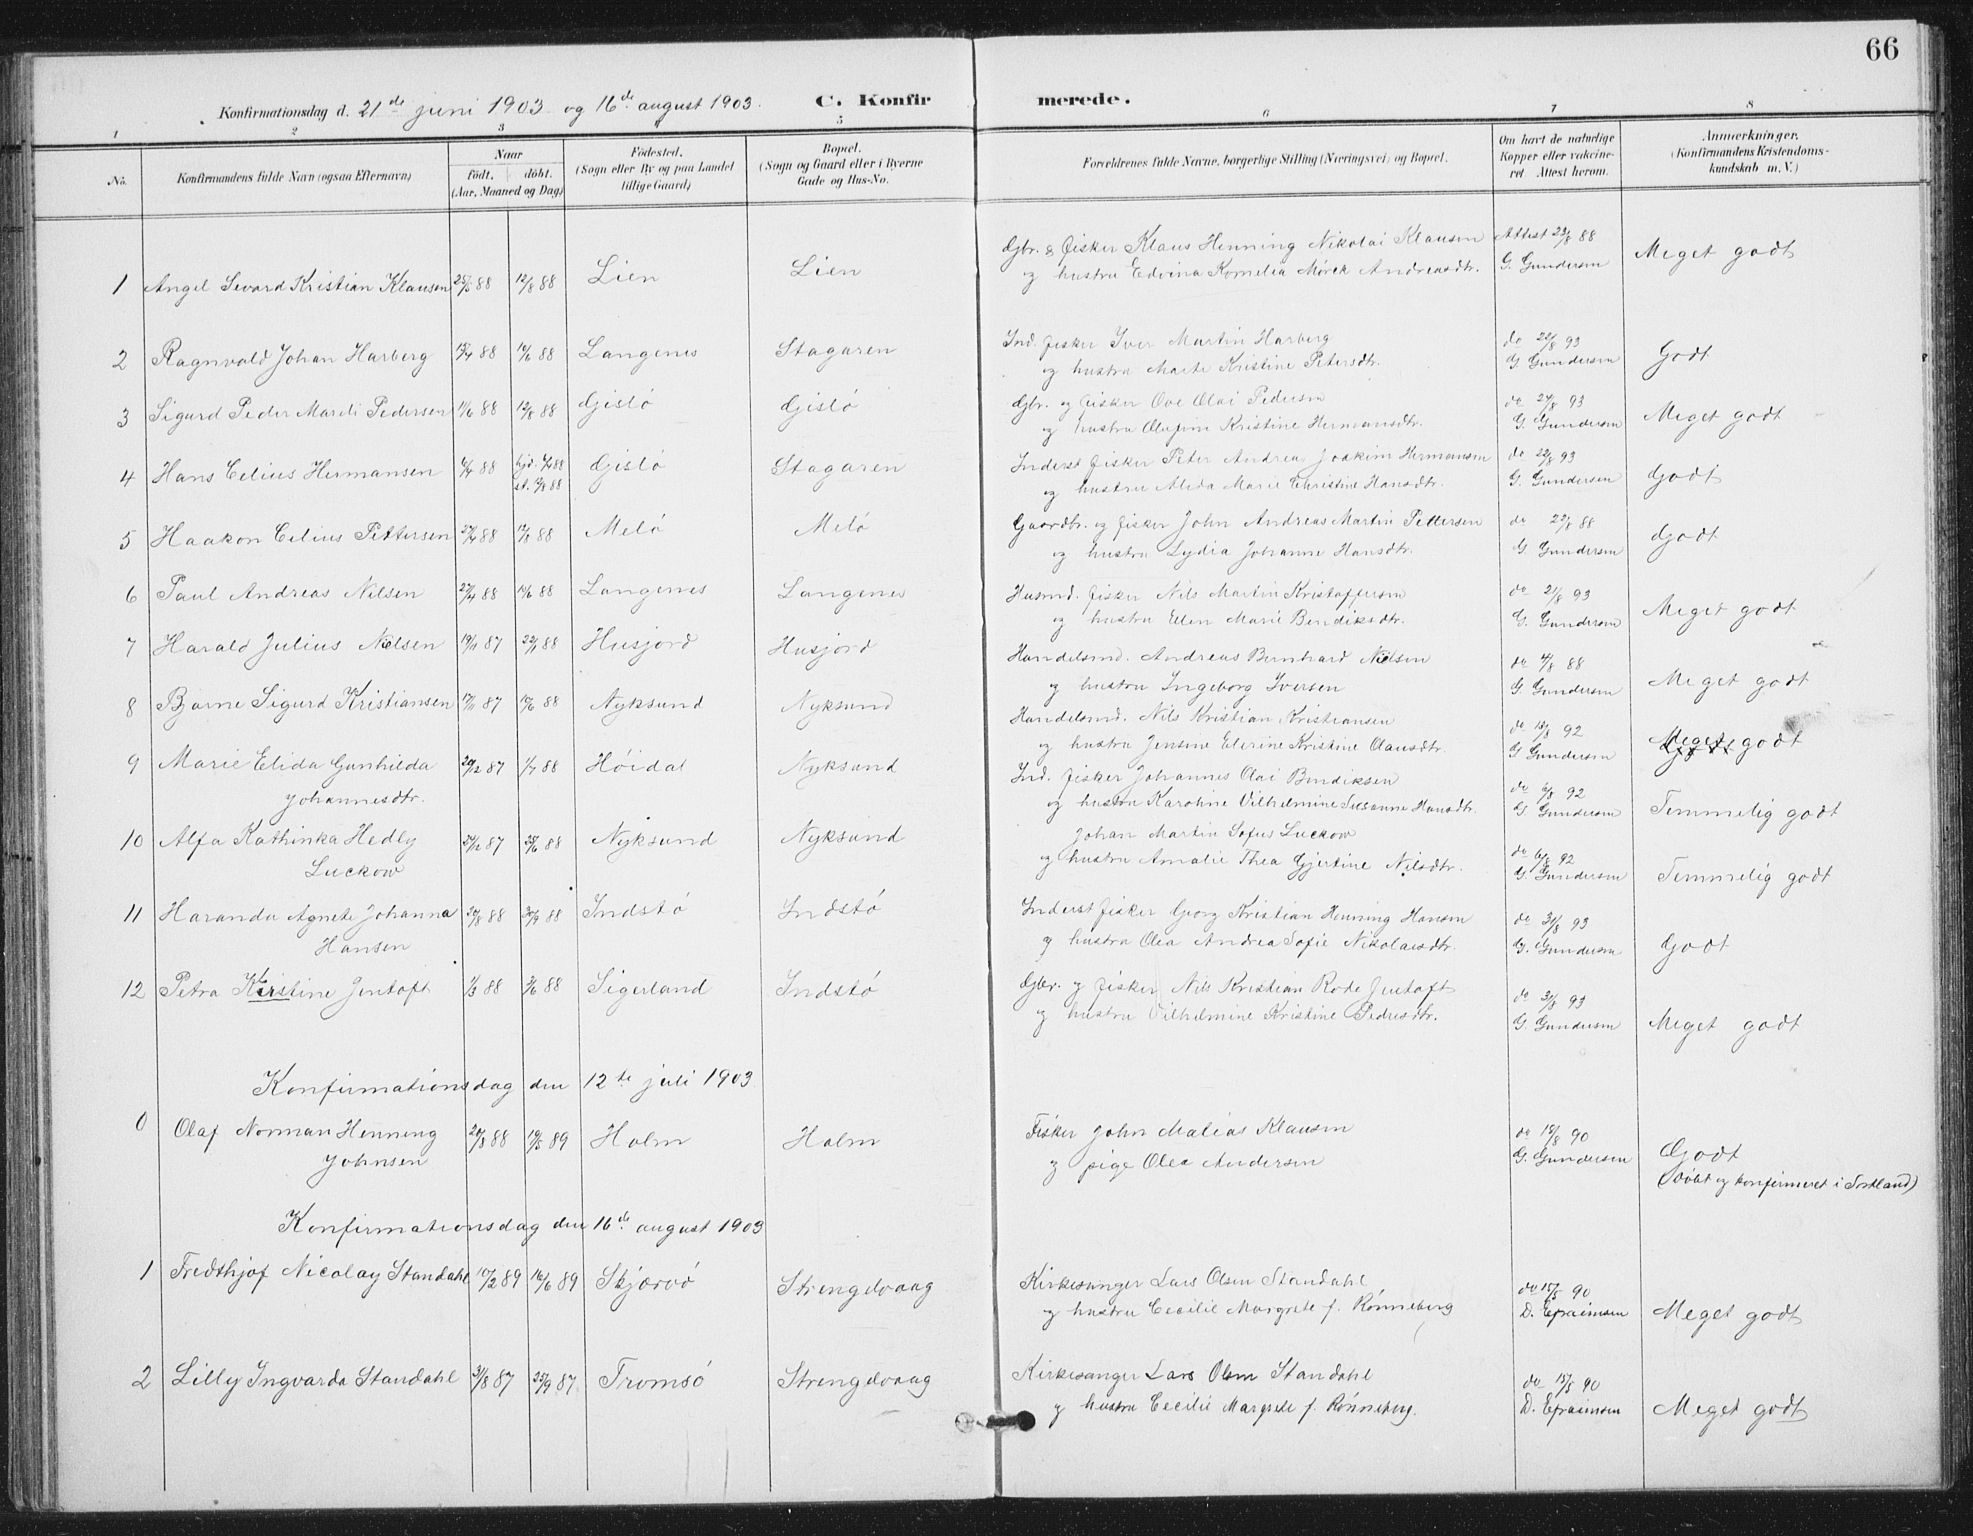 66
Konfirmationsdag d. 21de juni 1903 og 16de august 1903. C. Konfirmerede.
1 2 3 5 6 7 8
No. Konfirmandens fulde Navn (ogsaa Efternavn) Naar født. døbt. (Aar, Maaned og Dag) Fødested. (Sogn eller By og paa Landet tillige Gaard) Bopæl. (Sogn og Gaard eller i Byerne Gade og Hus-No. Forældrenes fulde Navne, borgerlige Stilling (Næringsvei) og Bopæl. Om havt de naturlige Kopper eller vakcineret. Attest herom. Anmærkninger. (Konfirmandens Kristendomskundskab m. V.)
1 Angel Sevard Kristian Klausen 25/5 88 12/8 88 Lien Lien Gbr. & fisker Klaus Henning Nikolai Klausen Attest 23/8 88 Meget godt
og hustru Edvina Kornelia Mørck Andreasdtr. G. Gundersen
2 Ragnvald Johan Harberg 88 10/6 88 Langenes Stagaren Ind. fisker Iver Martin Harberg do 22/8 93 Godt
og hustru Marte Kristine Petersdtr. G Gundersen
3 Sigurd Peder Mareli Pedersen 11/6 88 12/8 88 Gislø Gislø Gbr. og fisker Ove Olai Pedersen do 24/8 93 Meget godt
og hustru Olufine Kristine Hermansdtr. G. Gundersen
4 Hans Celius Hermansen 88 hjd. 88 Gislø Stagaren Inderst fisker Peter Andreas Joakim Hermansen do 22/8 93 Godt
st. 12/8 88 og hustru Alida Marie Christine Hansdtr. G. Gundersen
5 Haakon Celius Pettersen 27/4 88 12/8 88 Melø Melø Gaardbr. og fisker John Andreas Martin Pettersen do 22/8 88 Godt
og hustru Lydia Johanne Hansdtr. G Gundersen
6 Paul Andreas Nilsen 27/4 88 10/6 88 Langenes Langenes Husmd. fisker Nils Martin Kristoffersen do 21/8 93 Meget godt
og hustru Ellen Marie Bendiksdtr. G. Gundersen
7 Harald Julius Nielsen 19/11 87 22/1 88 Husjord Husjord Handelsmd. Andreas Bernhard Nielsen do 4/8 88 Meget godt
og hustru Ingeborg Iversen G. Gundersen
8 Bjarne Sigurd Kristiansen 17/11 87 10/6 88 Nyksund Nyksund Handelsmd. Nils Kristian Kristiansen do 18/8 92 Meget godt
og hustru Jensine Elerine Kristine Olausdtr. G Gundersen
9 Marie Elida Gunhilda 29/12 87 1/7 88 Høidal Nyksund Ind. fisker Johannes Olai Bendiksen do 6/8 92 Temmelig godt
Johannesdtr. og hustru Karoline Vilhelmine Susanne Hansdtr. G. Gundersen
10 Alfa Kathinka Hedly 24/12 87 25/6 88 Nyksund Nyksund Johan Martin Sofus Luckow do 6/8 92 Temmelig godt
Luckow og hustru Amalie Thea Gjertine Nilsdtr. G. Gundersen
11 Haranda Agnete Johanna 20/8 88 30/9 88 Indstø Indstø Inderst fisker Georg Kristian Henning Hansen do 31/8 93 Godt
Hansen og hustru Olea Andrea Sofie Nikolaisdtr. G. Gundersen
12 Petra Kirstine Jentoft 1/3 88 3/6 88 Sigerland Indstø Gbr. og fisker Nils Kristian Rode Jentoft do 31/8 93 Meget godt
og hustru Vilhelmine Kristine Pedersdtr. G. Gundersen
Konfirmationsdag den 12te juli 1903
0 Olaf Norman Henning 20/8 88 19/5 89 Holm Holm Fisker John Matias Klausen do 18/8 90 Godt
Johnsen og pige Olea Andersen G. Gundersen (Døbt og konfirmeret i Sortland)
Konfirmationsdag den 16de august 1903
1 Fredthjof Nicolay Standahl 10/2 89 16/6 89 Skjærvø Strengelvaag Kirkesanger Lars Olsen Standahl do 15/5 90 Meget godt
og hustru Cecilie Margrete f. Rønneberg D. Efraimsen
2 Lilly Ingvarda Standahl 31/8 87 25/9 87 Tromsø Strengelvaag Kirkesanger Lars Olsen Standahl do 15/5 90 Meget godt
og hustru Cecilie Margrete f. Rønneberg. D. Efraimsen